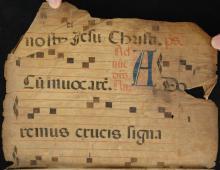 nostri Jesu Christi. ps.
Ad
Cū invocarē. A Do
remus crucis signa